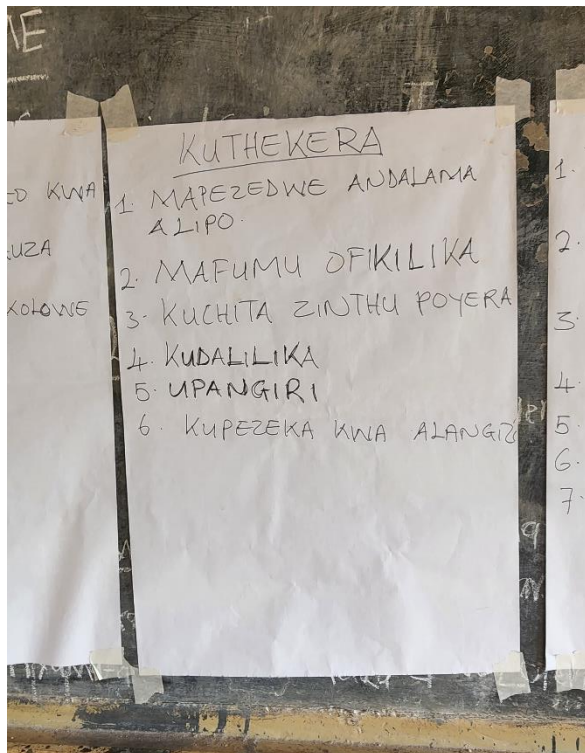 IE
ED KWA
UZA
KOLOWE
KUTHEKERA
1. MAPEZEDWE ANDALAMA
ALIPO.
2. MAFUMU OFIKILIKA
3. KUCHITA ZINTHU POYERA
4. KUDALILIKA
5. UPANGIRI
6. KUPEZEKA KWA ALANGIZ
1.
2.
3.
4.
5.
6.
7.